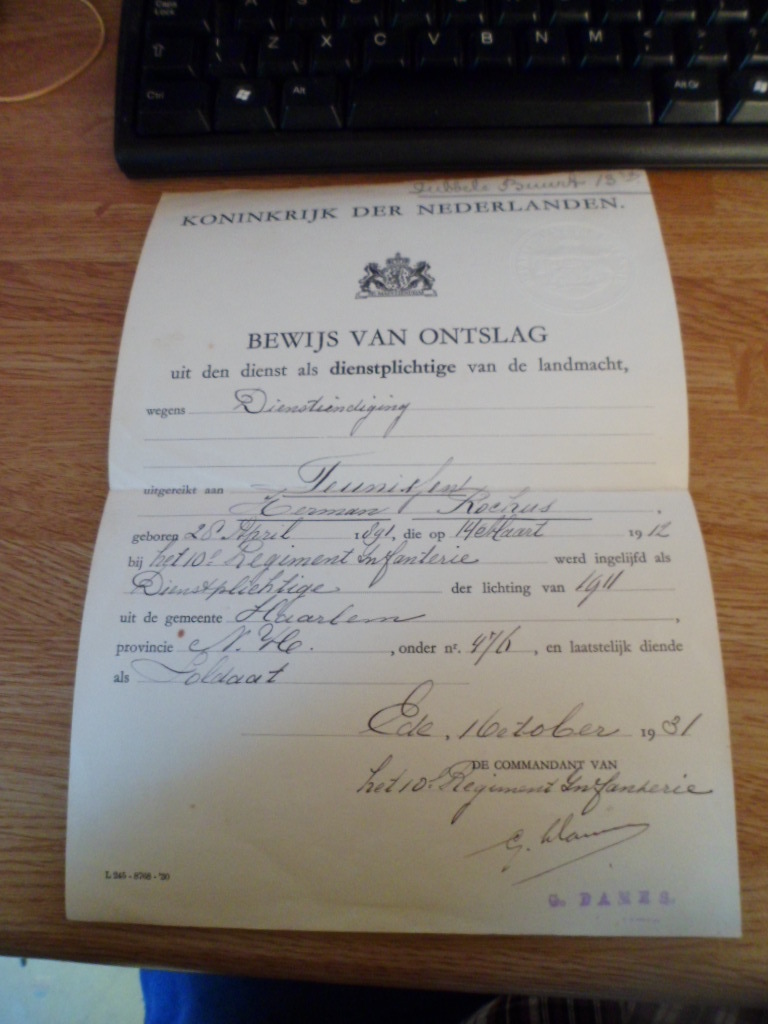 Caps Lock A S
Z X C V B N M < >
Ctrl Alt Alt Gr
Dubbele Buurt 13
KONINKRIJK DER NEDERLANDEN.
BEWIJS VAN ONTSLAG
uit den dienst als dienstplichtige van de landmacht,
wegens Diensteindiging
uitgereikt aan Teunissen
Herman Rochus,
geboren 28 April 1891, die op 14 Maart 1912
bij het 10e Regiment Infanterie werd ingelijfd als
Dienstplichtige der lichting van 1911
uit de gemeente Haarlem,
provincie N. H., onder nr. 47/6, en laatstelijk diende
als Soldaat
Ede, 1 October 1931
DE COMMANDANT VAN
het 10e Regiment Infanterie
G. DAMES.
L 245 - 8768 - '30